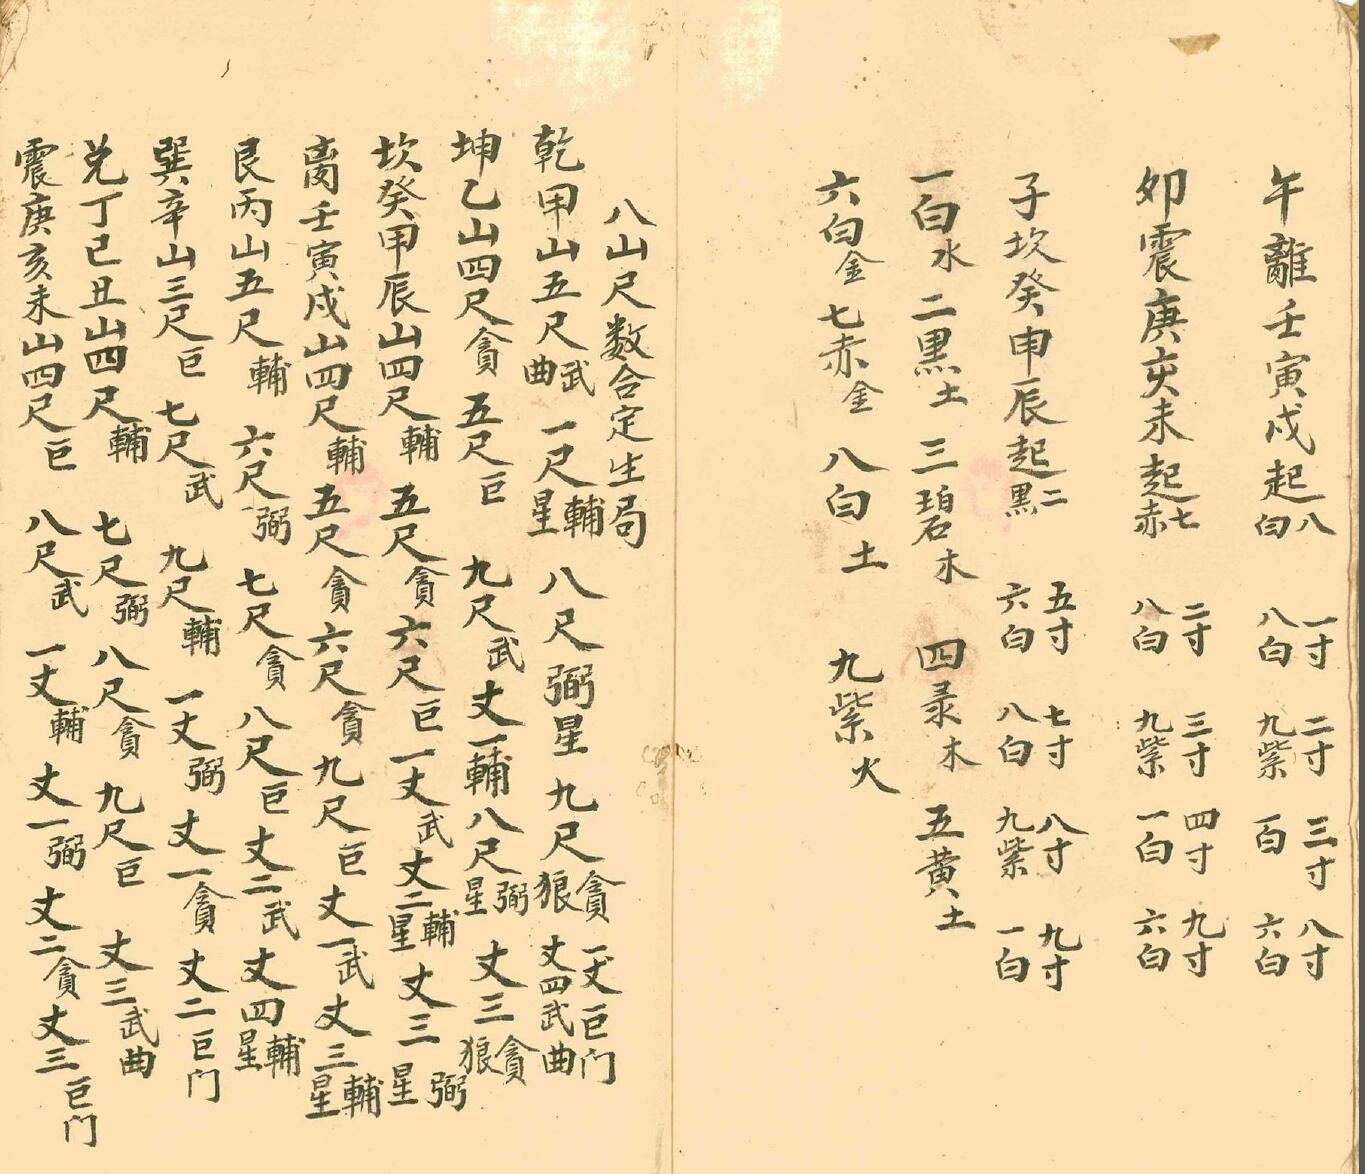 午離壬寅戌起八白 一寸八白 二寸九紫 三寸一白 八寸六白
卯震庚亥未起七赤 二寸八白 三寸九紫 四寸一白 九寸六白
子坎癸申辰起二黑 五寸六白 七寸八白 八寸九紫 九寸一白
一白水 二黑土 三碧木 四录木 五黄土
六白金 七赤金 八白土 九紫火
八山尺数合定生局
乾甲山五尺武曲 一尺輔星 八尺弼星 九尺貪狼 一丈巨门 丈四武曲
坤乙山四尺貪 五尺巨 九尺武 丈一輔 八尺弼星 丈三貪狼
坎癸甲辰山四尺輔 五尺貪 六尺巨 一丈武 丈二輔星 丈三弼星
离壬寅戌山四尺輔 五尺貪 六尺貪 九尺巨 丈一武 丈三輔星
艮丙山五尺輔 六尺弼 七尺貪 八尺巨 丈二武 丈四輔星
巽辛山三尺巨 七尺武 九尺輔 一丈弼 丈一貪 丈二巨门
兑丁巳丑山四尺輔 七尺弼 八尺貪 九尺巨 丈三武曲
震庚亥未山四尺巨 八尺武 一丈輔 丈一弼 丈二貪 丈三巨门